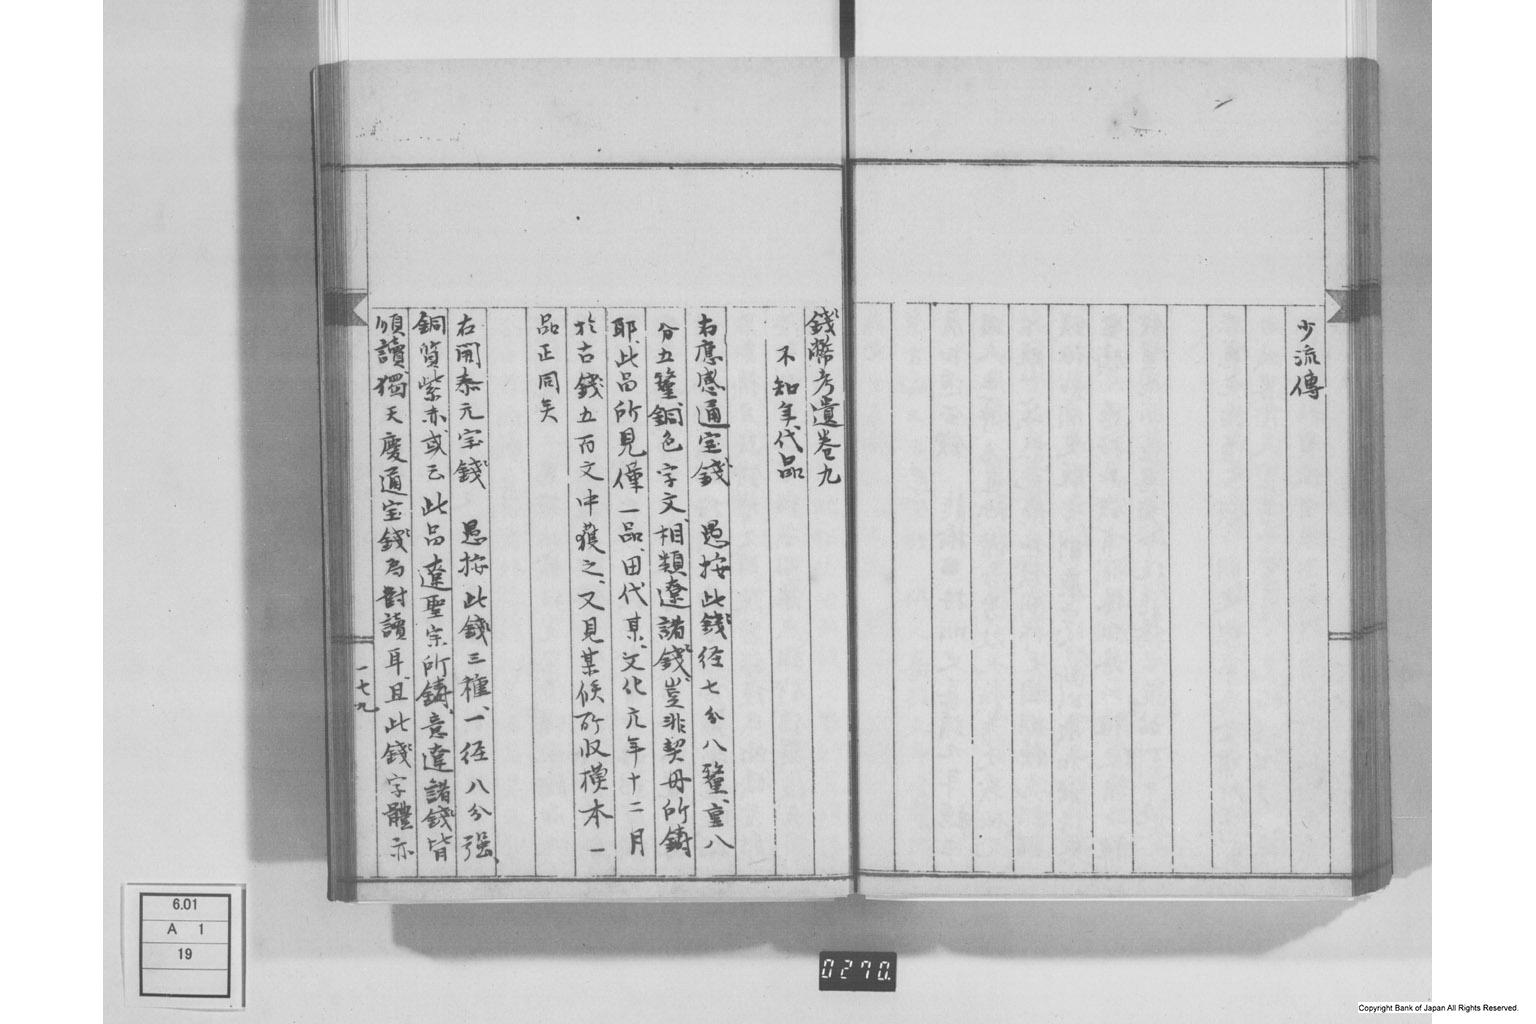 少流傳
錢幣考遺卷九
不知年代品
右應感通宝錢 愚按此錢径七分八釐重八
分五釐銅色字文相類遼諸錢豈非契丹所鑄
耶此品所見僅一品田代某文化元年十二月
於古錢五百文中獲之又見某候所収模本一
品正同矣
右開泰元宝錢 愚按此錢三種一径八分强
銅質紫赤或云此品遼聖宗所鑄意遼諸錢皆
順讀獨天慶通宝錢為對讀耳且此錢字體亦
一七九
6.01
A 1
19
0270.
Copyright Bank of Japan All Rights Reserved.